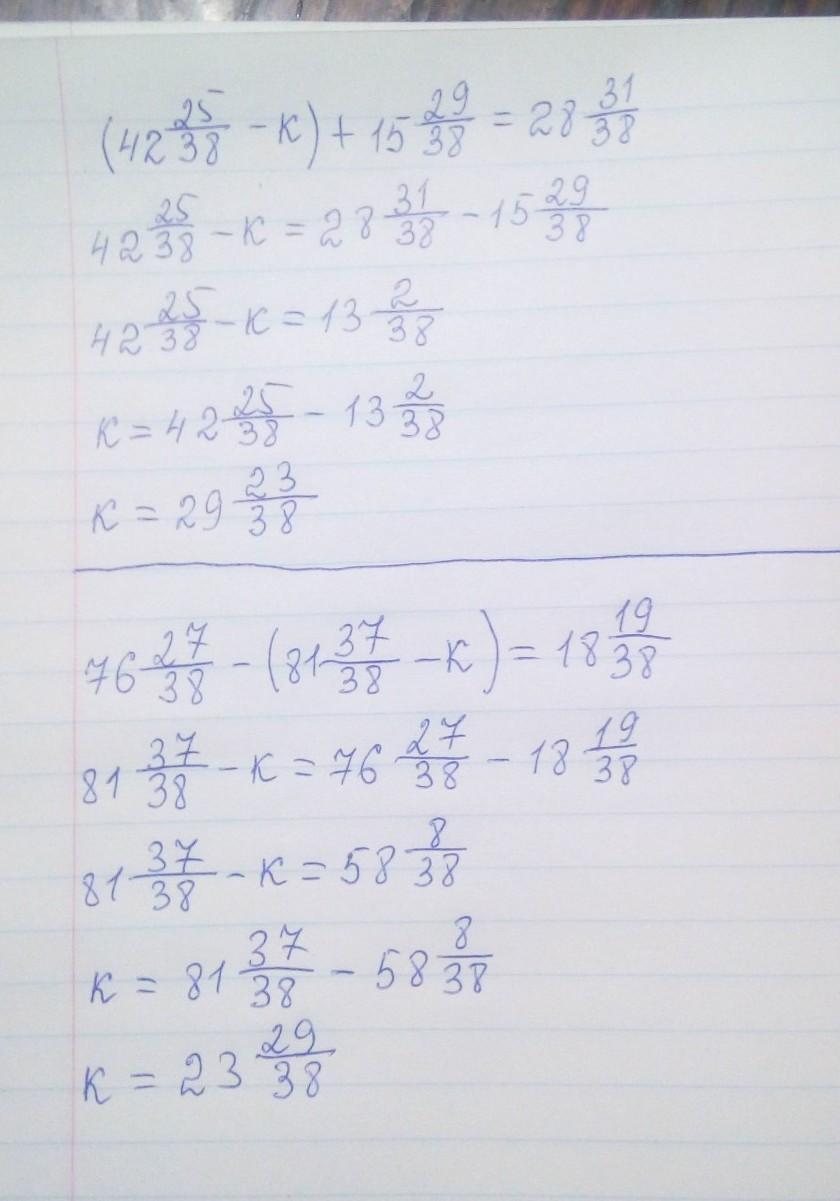 (42 25/38 - к) + 15 29/38 = 28 31/38
42 25/38 - к = 28 31/38 - 15 29/38
42 25/38 - к = 13 2/38
к = 42 25/38 - 13 2/38
к = 29 23/38
76 27/38 - (81 37/38 - к) = 18 19/38
81 37/38 - к = 76 27/38 - 18 19/38
81 37/38 - к = 58 8/38
к = 81 37/38 - 58 8/38
к = 23 29/38